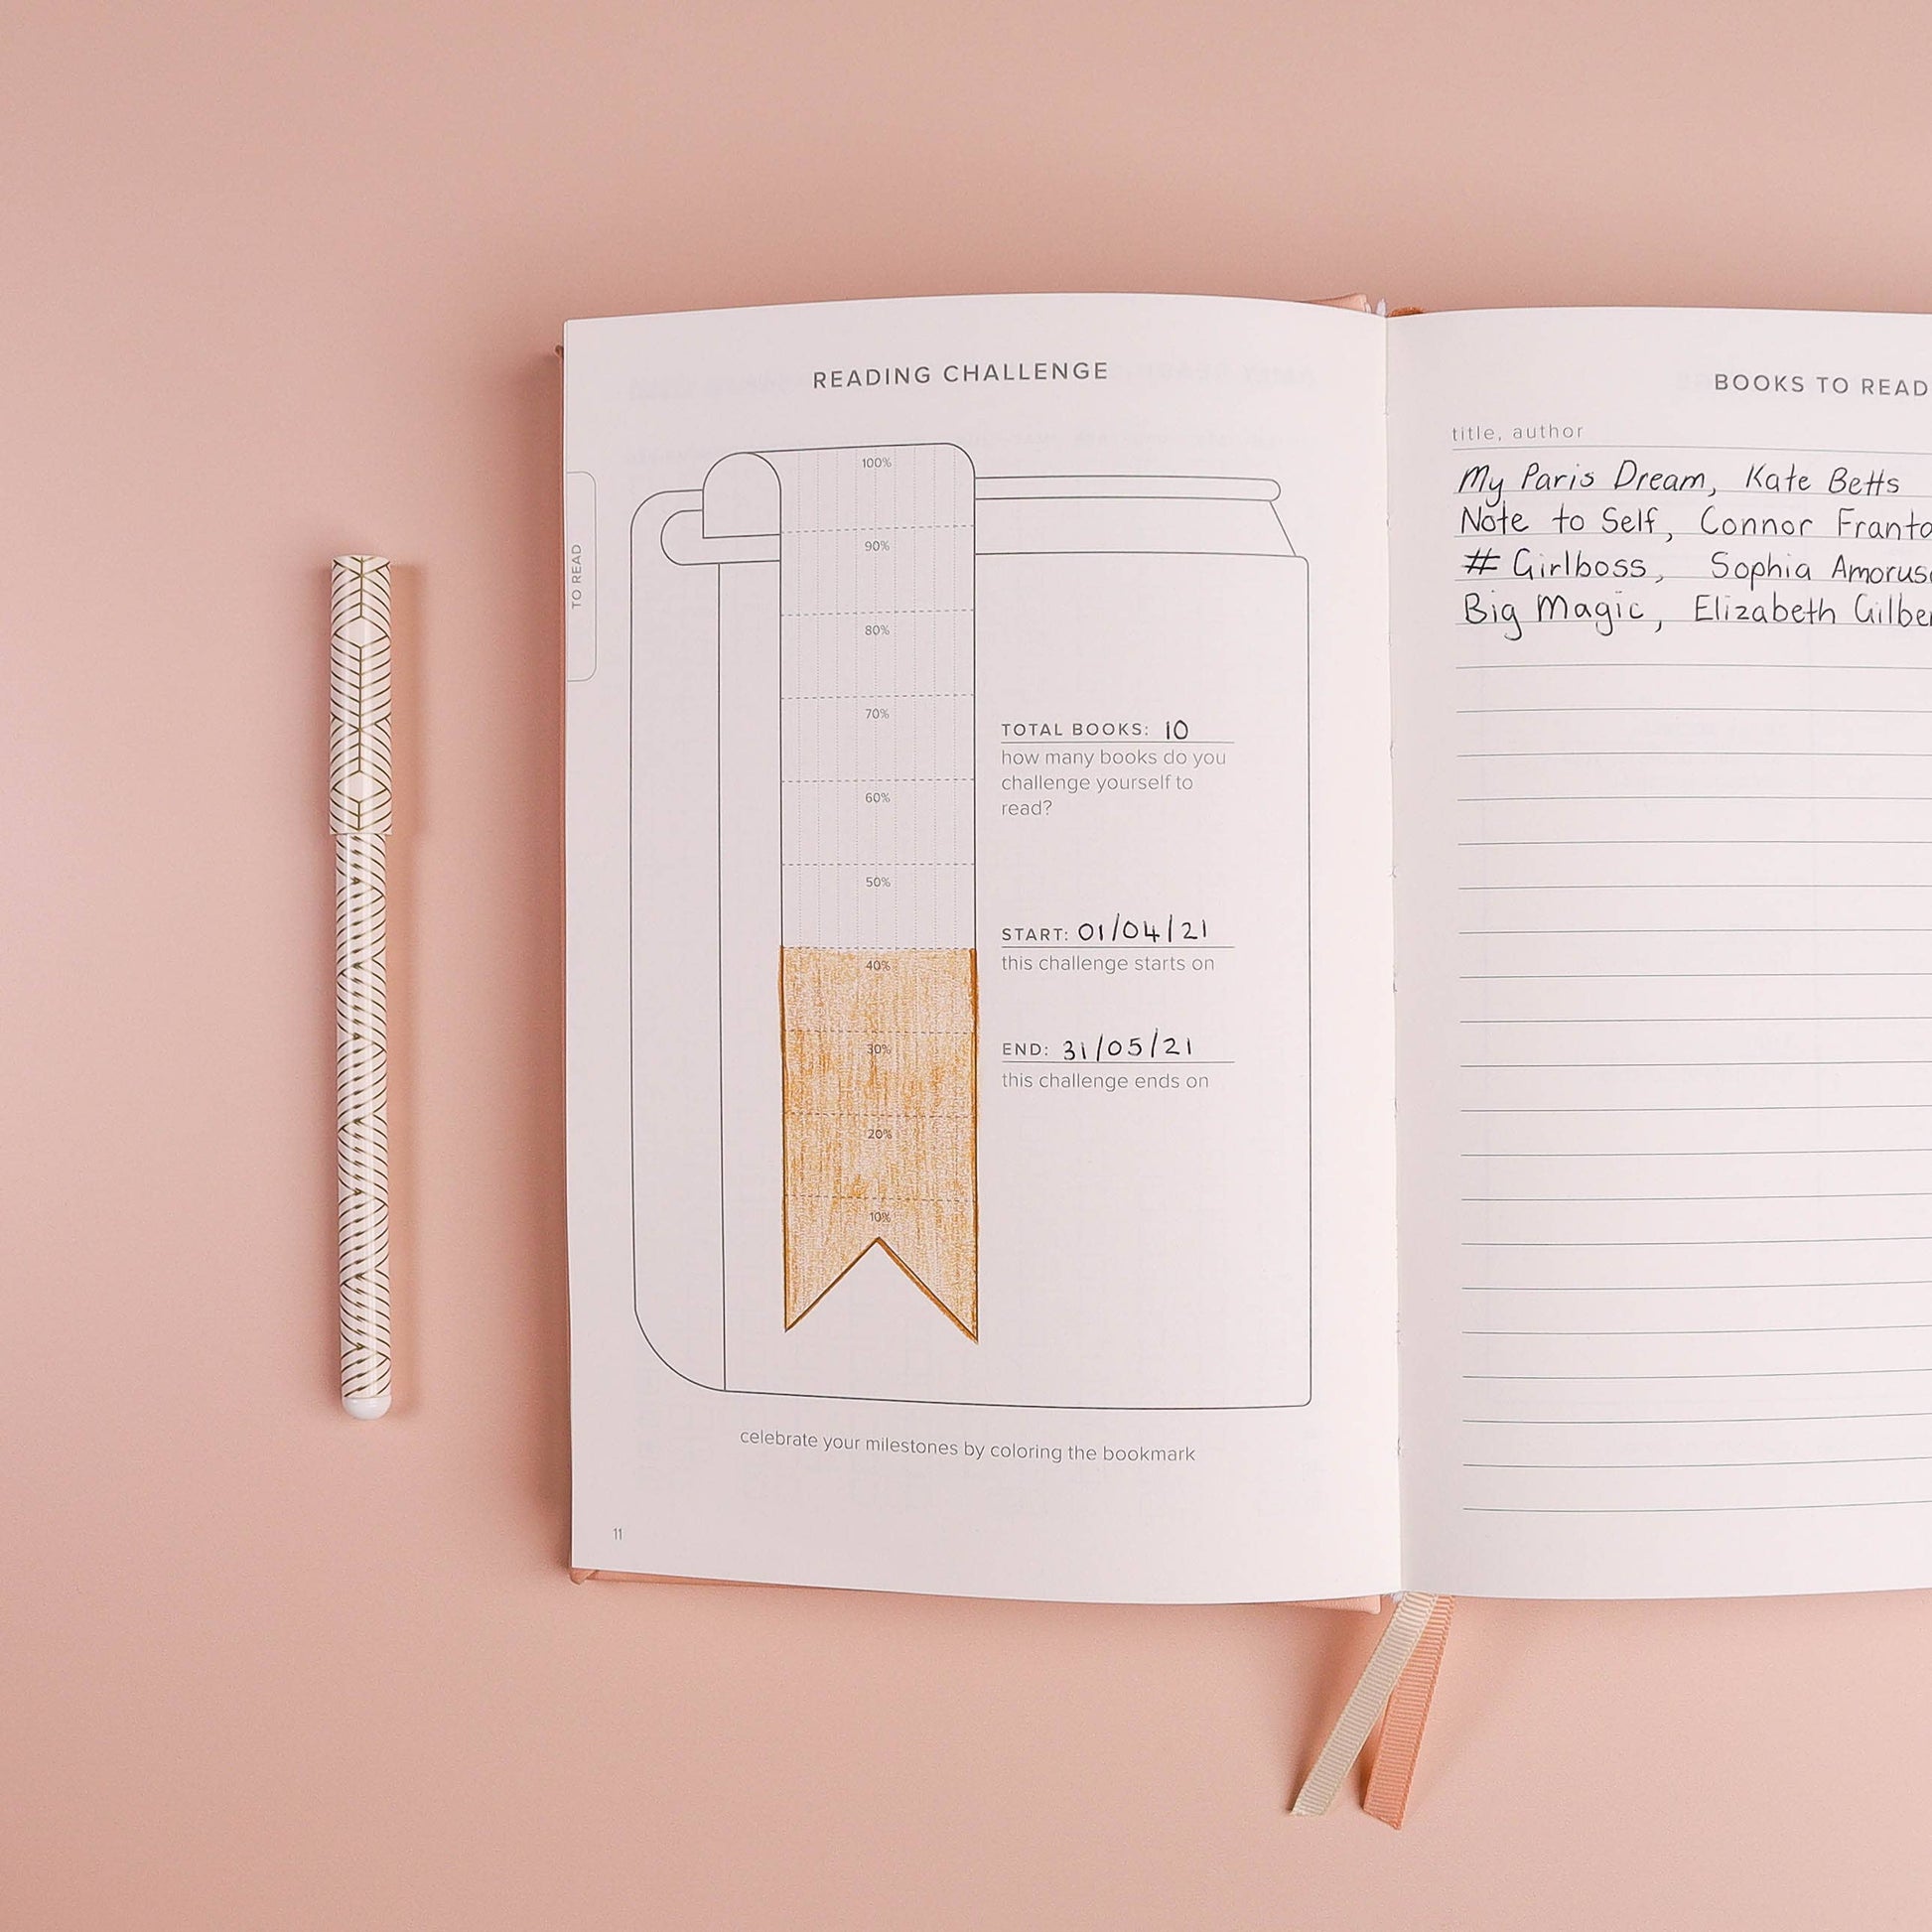 READING CHALLENGE
TO READ
100%
90%
80%
70%
60%
50%
40%
30%
20%
10%
TOTAL BOOKS: 10
how many books do you
challenge yourself to
read?
START: 01/04/21
this challenge starts on
END: 31/05/21
this challenge ends on
celebrate your milestones by coloring the bookmark
11
BOOKS TO READ
title, author
My Paris Dream, Kate Betts
Note to Self, Connor
# Girlboss, Sophia
Big Magic, Elizabeth